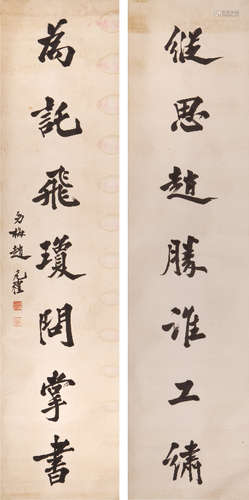 縱思趙勝誰工繡
為託飛瓊問掌書